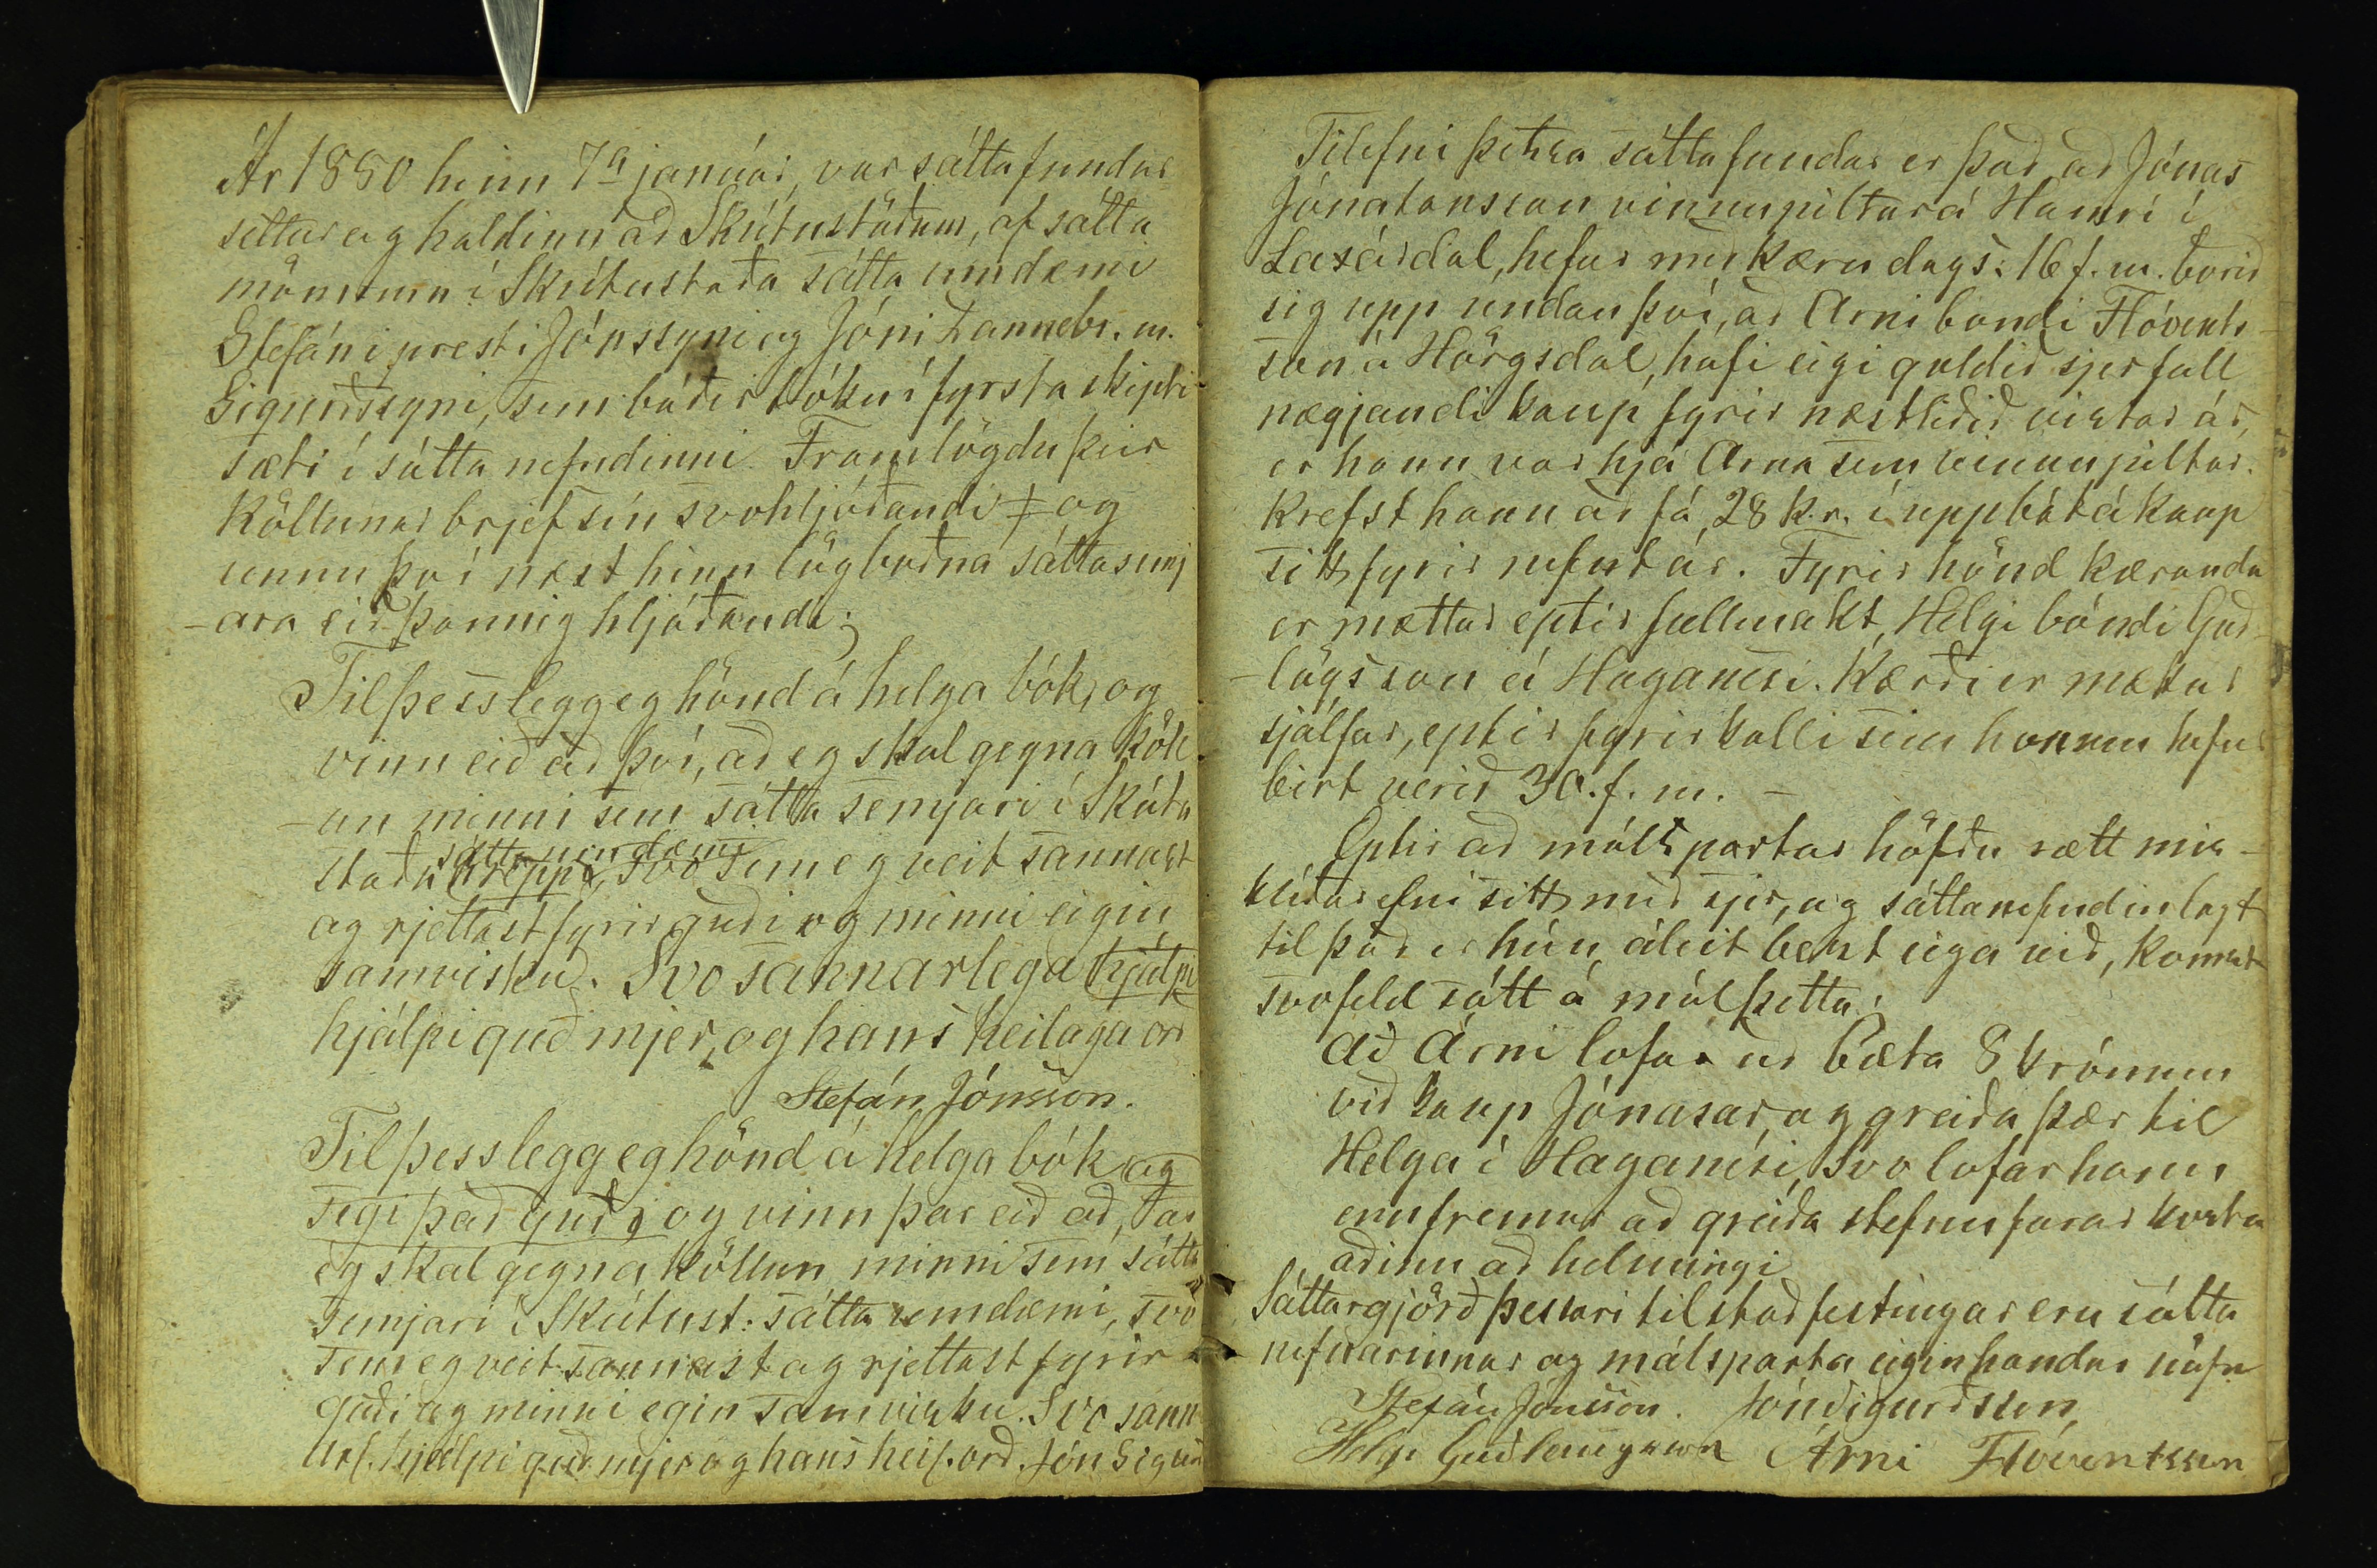 Ár 1880 hinn 7a janúar, var sáttafundur
settur og haldinn að Skútustöðum, af sátta
mönnum í Skútustaða sátta umdæmi
Stefáni presti Jónssyni og Jóni Dannebr. m.
Sigurðssyni, sem báðir tóku í fyrsta skipti
sæti í sátta nefndinni. Framlögdu þeir
köllunar brjef sín svohljóðandi ‡ og
unnu því næst hinn lögboðna sáttasemj
-ara eið þannig hljóðandi;
Til þess legg eg hönd á helga bók, og
vinn eið að því, að eg skal gegna köll
-un minni sem sátta semjari í Skútu
sáttaumdæmi
staða hreppi, svo sem eg veit sannast
og rjettast fyrir guði og minni eigin
samvisku. Svo sannarlega hjálpi
hjálpi guð mjer, og hans heilaga orð
Stefán Jónsson.
Til þess legg eg hönd á helga bók og
segi það guði og vinn þar eið að, að
eg skal gegna köllun minni sem sátta
semjari í Skútust: sátta umdæmi, svo
sem eg veit sannast og rjettast fyrir
guði og minni egin samvisku. Svo sann
arl. hjálpi guð mjer og hans heil. orð. Jón Sigurð
Tilefni þessa sáttafundar er það að Jónas
Jónatansson vinnupiltur á Hamri í
Laxárdal, hefur með kæru dags: 16 f. m. borið
sig upp undan því, að Arni bóndi Flóvents-
son á Hörgsdal, hafi eigi goldið sjer full
nægjandi kaup fyrir næstliðið vistar ár,
er hann var hjá Arna sem vinnupiltur.
Krefst hann að fá 28 kr. í uppbót á kaup
sitt fyrir nefnt ár. Fyrir hönd kæranda
er mættur eptir fullmakt, Helgi bóndi Guð-
-lögsson á Haganesi. Kærði er mættur
sjálfur, eptir fyrirkalli sem honum hefur
birt verið 30. f. m. -
Eptir að málspartar höfðu rætt mis-
klíðar efni sitt með sjer, og sáttanefndin lagt
til það er hún áleit bezt eiga við, komst
svofeld sátt á mál þetta:
Að Árni lofar að bæta 8 krónum
við kaup Jónasar, og greiða þær til
Helga í Haganesi, Svo lofar hann
ennfremur að greiða stefnufarar kostn
aðinn að helmingi
Sáttargjörð þessari til staðfestingar eru sátta
nefndarinnar og málsparta eiginhandar nöfn
Stefán Jónsson. Jón Sigurðsson,
Helgi Guðlaugsson Árni Flóventsson